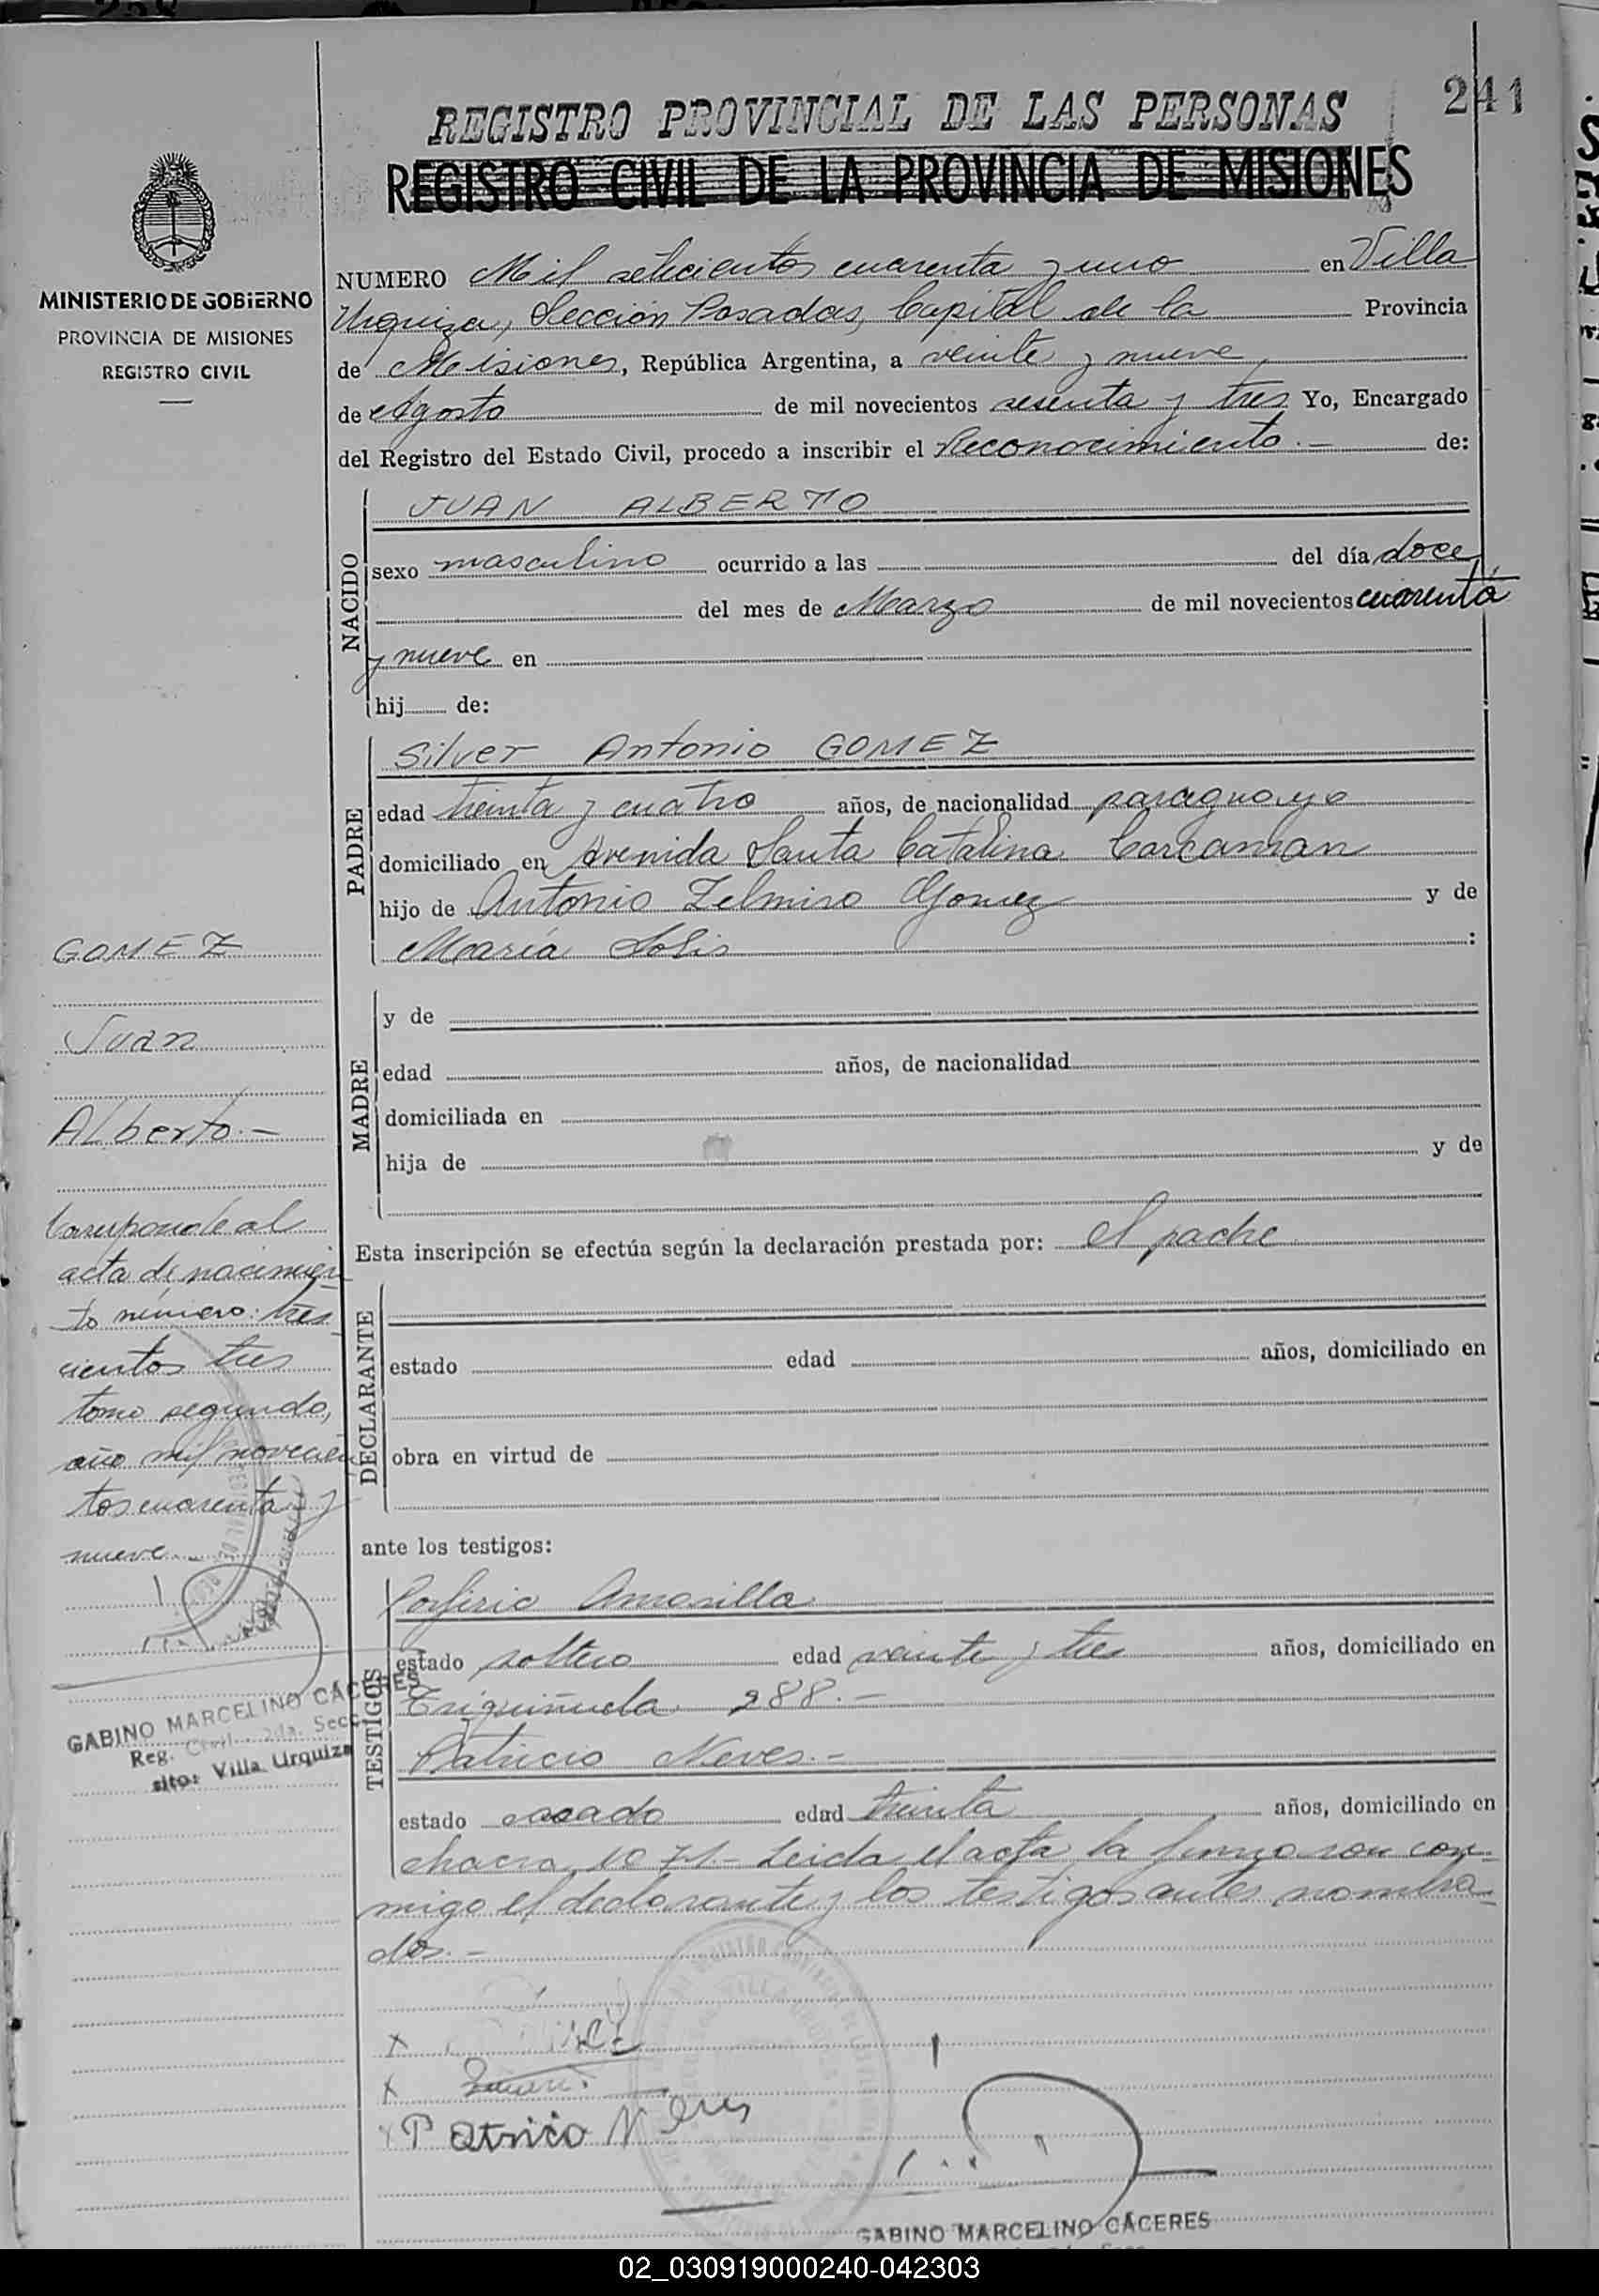 241
REGISTRO PROVINCIAL DE LAS PERSONAS
REGISTRO CIVIL DE LA PROVINCIA DE MISIONES
MINISTERIO DE GOBIERNO
PROVINCIA DE MISIONES
REGISTRO CIVIL
NUMERO Mil setecientos cuarenta y uno en Villa
Urquiza, Sección Posadas, Capital de la Provincia
de Misiones, República Argentina, a veinte y nueve
de Agosto de mil novecientos sesenta y tres Yo, Encargado
del Registro del Estado Civil, procedo a inscribir el Reconocimiento.- de:
NACIDO
JUAN ALBERTO
sexo masculino ocurrido a las del día doce
del mes de Marzo de mil novecientos cuarenta
y nueve en
hij de:
PADRE
Silver Antonio GOMEZ
edad treinta y cuatro años, de nacionalidad paraguayo
domiciliado en Avenida Santa Catalina
hijo de Antonio Zelmiro Gomez y de
María Solis :
MADRE
y de
edad años, de nacionalidad
domiciliada en
hija de y de
Esta inscripción se efectúa según la declaración prestada por: el padre
DECLARANTE
estado edad años, domiciliado en
obra en virtud de
ante los testigos:
TESTIGOS
Porfirio Amarilla
estado soltero edad veinte y tres años, domiciliado en
288.-
Patricio Neves.-
estado casado edad treinta años, domiciliado en
chacra Leida el acta la firmaron con-
migo el declarante y los testigos antes nombra-
dos.-
X
X
X Patricio Neves
GABINO MARCELINO CACERES
GOMEZ
Juan
Alberto.-
Corresponde al
acta de nacimien
to número: tres
cientos tres
tomo segundo,
año mil novecien
tos cuarenta y
nueve.-
GABINO MARCELINO CACERES
Reg. Civil - 2da. Secc.
sito: Villa Urquiza
02_030919000240-042303